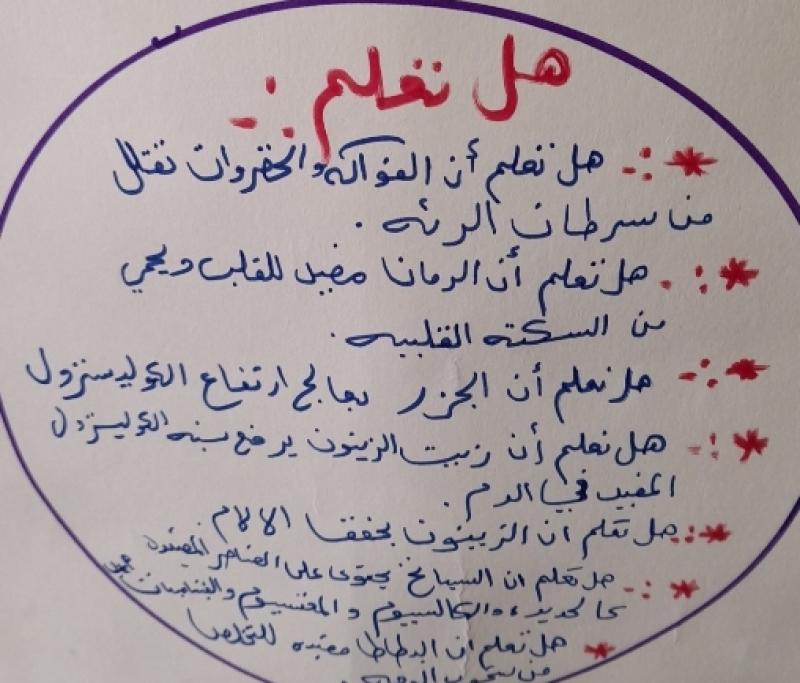 هل تعلم :-
* :- هل تعلم أن الفواكه والخضروات تقلل
من سرطان الرئه .
* :. هل تعلم أن الرمان مفيد للقلب ويحمي
من السكته القلبيه .
* :- هل تعلم أن الجزر يعالج ارتفاع الكوليسترول
* :- هل تعلم أن زيت الزيتون يرفع نسبه الكوليسترول
المفيد في الدم .
* :- هل تعلم ان الزيتون يخفف الالام
* :- هل تعلم ان السبانخ يحتوى على العناصر المفيده
كا لحديد و الكالسيوم و المغنسيوم والفيتامينات
* هل تعلم ان البطاطا مفيده للتخلص
من